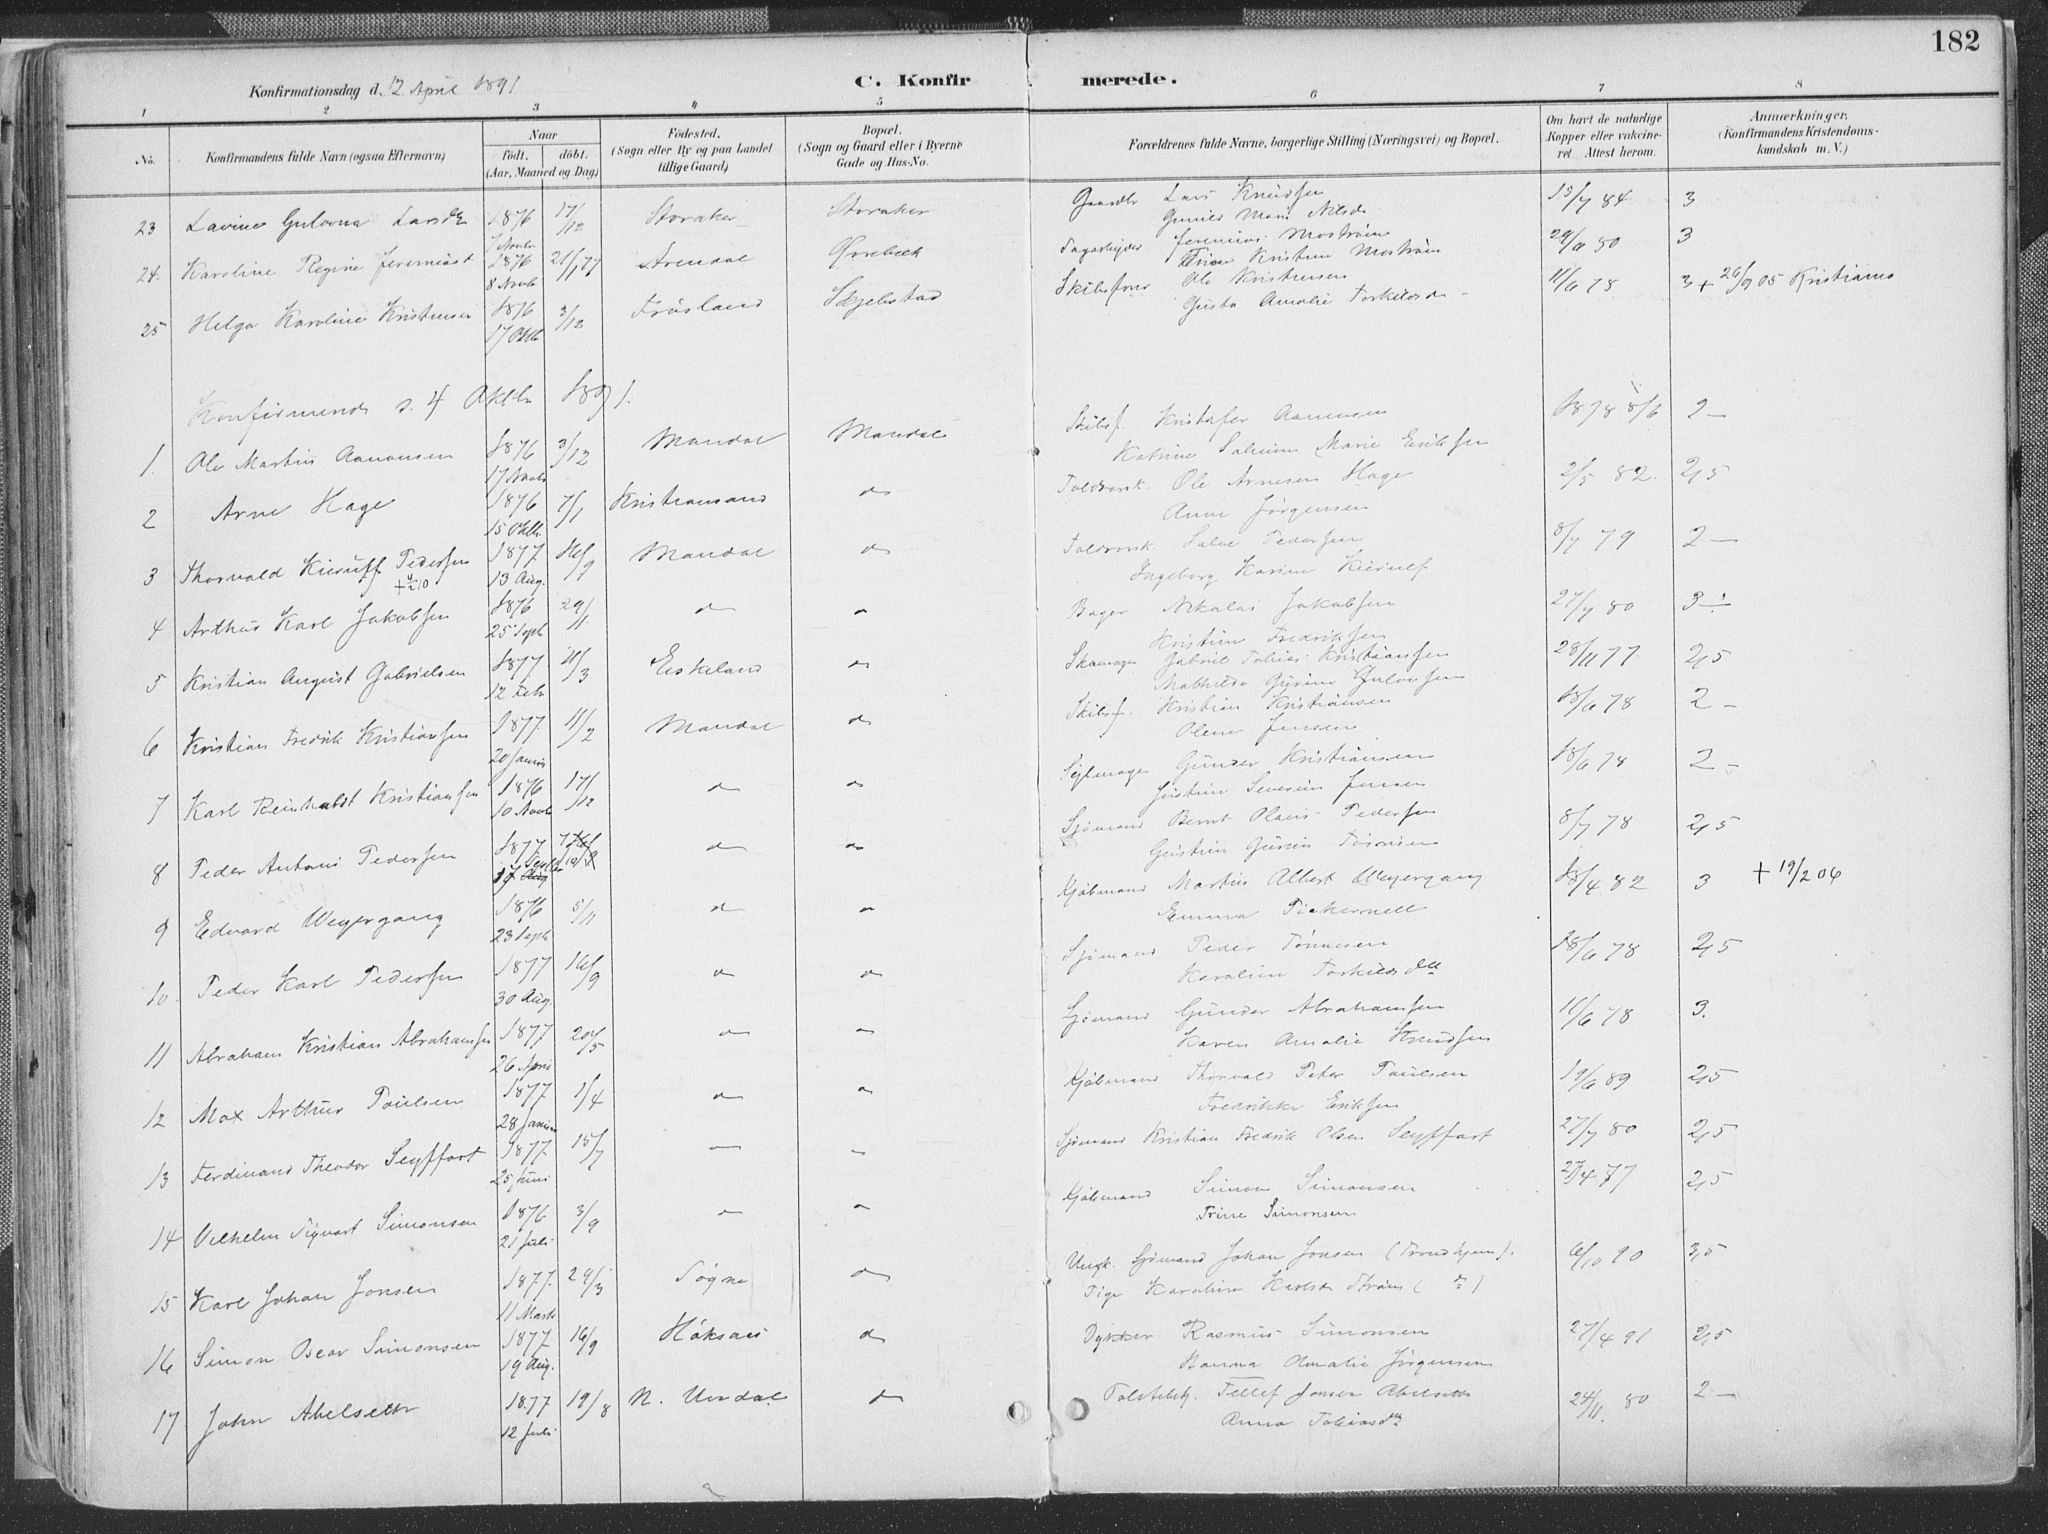 182
Konfirmationsdag d. 12 April 1891
C. Konfirmerede.
1 2 3 4 5 6 7 8
No.
Konfirmandens fulde Navn (ogsaa Efternavn)
Naar
födt. döbt.
(Aar, Maaned og Dag)
Födested.
(Sogn eller By og paa Landet tillige Gaard)
Bopæl.
(Sogn og Gaard eller i Byerne Gade og Hus-No.
Forældrenes fulde Navne, borgerlige Stilling (Næringsvei) og Bopæl.
Om havt de naturlige Kopper eller vakcineret. Attest herom.
Anmærkninger,
(Konfirmandens Kristendomskundskab m. V.)
23 Lavine Gulovna Larsdtr 1876 7 Novbr 17/12 Storaker Storaker Gaardbr Lars Knudsen 84 3
Gunild Marie Nilsdr
24. Karoline Regine Jeremiasd 1876 8 Novbr 21/1 77 Arendal Jeremias Mostrøm 29/11 80 3
Trine Kristine Mostrøm
25 Helga Karoline Kristensen 1876 17 Oktb 3/12 Frøsland Skjebstad Skibsfører Ole Kristensen 11/6 78 3 + 26/9 05 Kristiania
Gusta Amalie Torkildsdr
Konfirmerede d. 4 Oktbr 1891.
1. Ole Martin Aanonsen 1876 17 Novbr 3/12 Mandal Mandal Skibsf. Kristofer Aanensen 1878 18/6 2 —
Katrine Salomine Marie Eriksen
2 Arne Hage 1876 15 Oktb. 7/1 Kristiansand do Toldrorsk. Ole Arnesen Hage 2/5 82. 2,5
Anne Jørgensen
3 Thorvald Kierulff Pedersen 1877 13 Aug. 16/9 Mandal do Toldrorsk. Salve Pedersen 8/7 79 2 —
Ingeborg Karine Kierulf
4 Arthur Karl Jakobsen 1876 25 Septb 29/11 do do Bager Nikolai Jakobsen 27/7 80 3
Kristine Fredriksen
5 Kristian August Gabrielsen 1877 12 Feb 11/3 Eskeland do Skomager Gabriel Tobias Kristiansen 28/11 77 2,5
Mathilde Gurine Gulovsen
6 Kristian Fredrik Kristiansen 1877. 20 Januar 11/2 Mandal do Skibsf. Kristian Kristiansen 18/6 78 2 —
Olene Jensen
7 Karl Reinholdt Kristiansen 1876 10 Novb 17/12 do do Sejlmager Gunder Kristiansen 18/6 78 2 —
Justine Severine Jensen
8 Peder Antoni Pedersen 1877 do do Sjømand Bernt Olaus Pedersen 8/7 78 2,5
Gustine Gurine
9 Edvard Weyergang 1876 23 Septb 5/11 do do Kjøbmand Martin Albert Weyergang 18/4 82 3 + 19/2 06
Emma Pickernell
10. Peder Karl Pedersen 1877 30 Aug. 16/9 do do Sjømand Peder Tønnesen 18/6 78 2,5
Karoline Torkilds dtr
11 Abraham Kristian Abrahamsen 1877 26 April 20/5 do do Sjømand Gunder Abrahamsen 11/6 78 3.
Karen Amalie Knudsen
12 Max Arthur Paulsen 1877 28 Januar 1/4 do do Kjøbmand Thorvald Peter Paulsen 19/6 89 2,5
Fredrikke Eriksen
13 Ferdinand Theodor Seyffart 1877. 25 Juni 15/7 — — Sjømand Kristian Fredrik Olsen Seyffart 27/7 80 2,5
14 Vilhelm Sigvart Simonsen 1876 21 Juli 3/9 do do Kjøbmand Simon Simonsen 27/4 77 2,5
Trine Simonsen
15 Karl Johan Jonsen 1877. 11 Marts 29/3 Søgne do Ungk. Sjømand Johan Jonsen (Trondhjem). 6/10 90 3,5
Pige Karoline Karlsdr Strøm ( do )
16 Simon Oscar Simonsen 1877 19 Aug. 16/9 do Dykker Rasmus Simonsen 27/4 91 2,5
Hanna Amalie Jørgensen
17 John Abelseth 1877 12 Juli 19/8 N. Undal do Tellef Jonsen Abelseth 24/11. 80 2 —
Anna Tobiasdtr